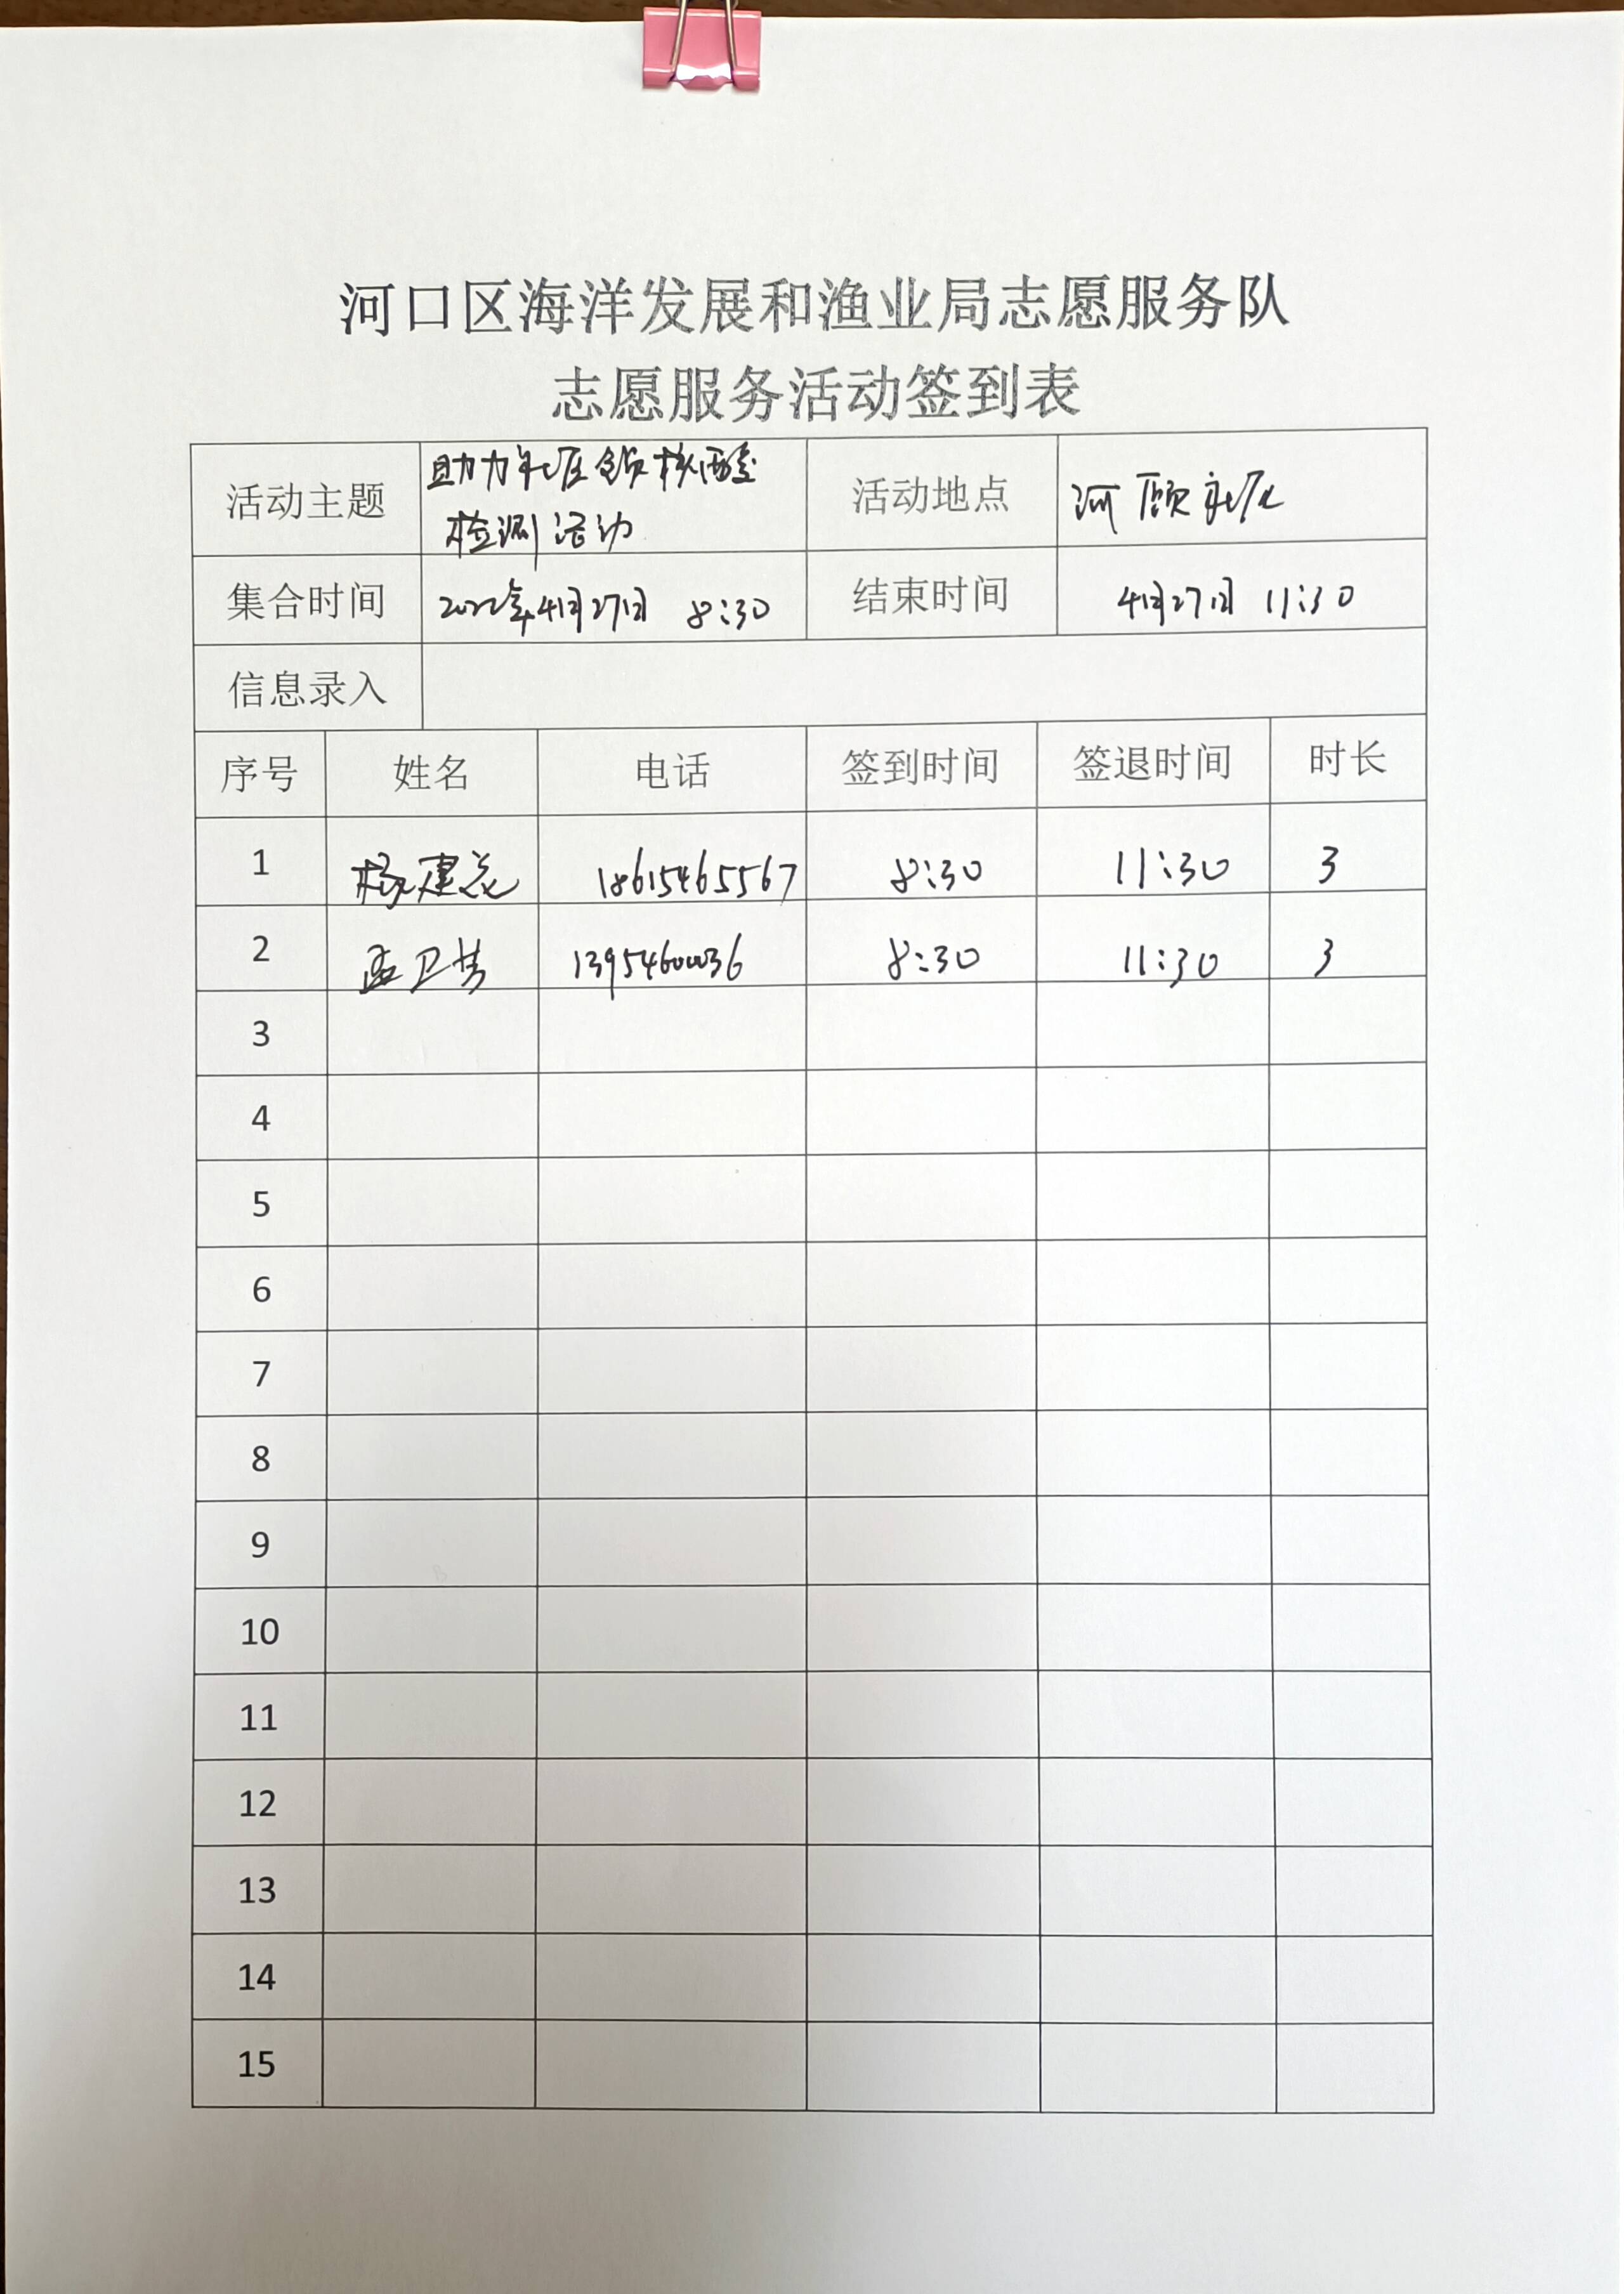 河口区海洋发展和渔业局志愿服务队
志愿服务活动签到表
活动主题 助力社区全员核酸 活动地点 河颐社区
检测活动
集合时间 2022年4月27日 8:30 结束时间 4月27日 11:30
信息录入
序号 姓名 电话 签到时间 签退时间 时长
1 杨建 18615465567 8:30 11:30 3
2 孟卫 8:30 11:30 3
3
4
5
6
7
8
9
10
11
12
13
14
15